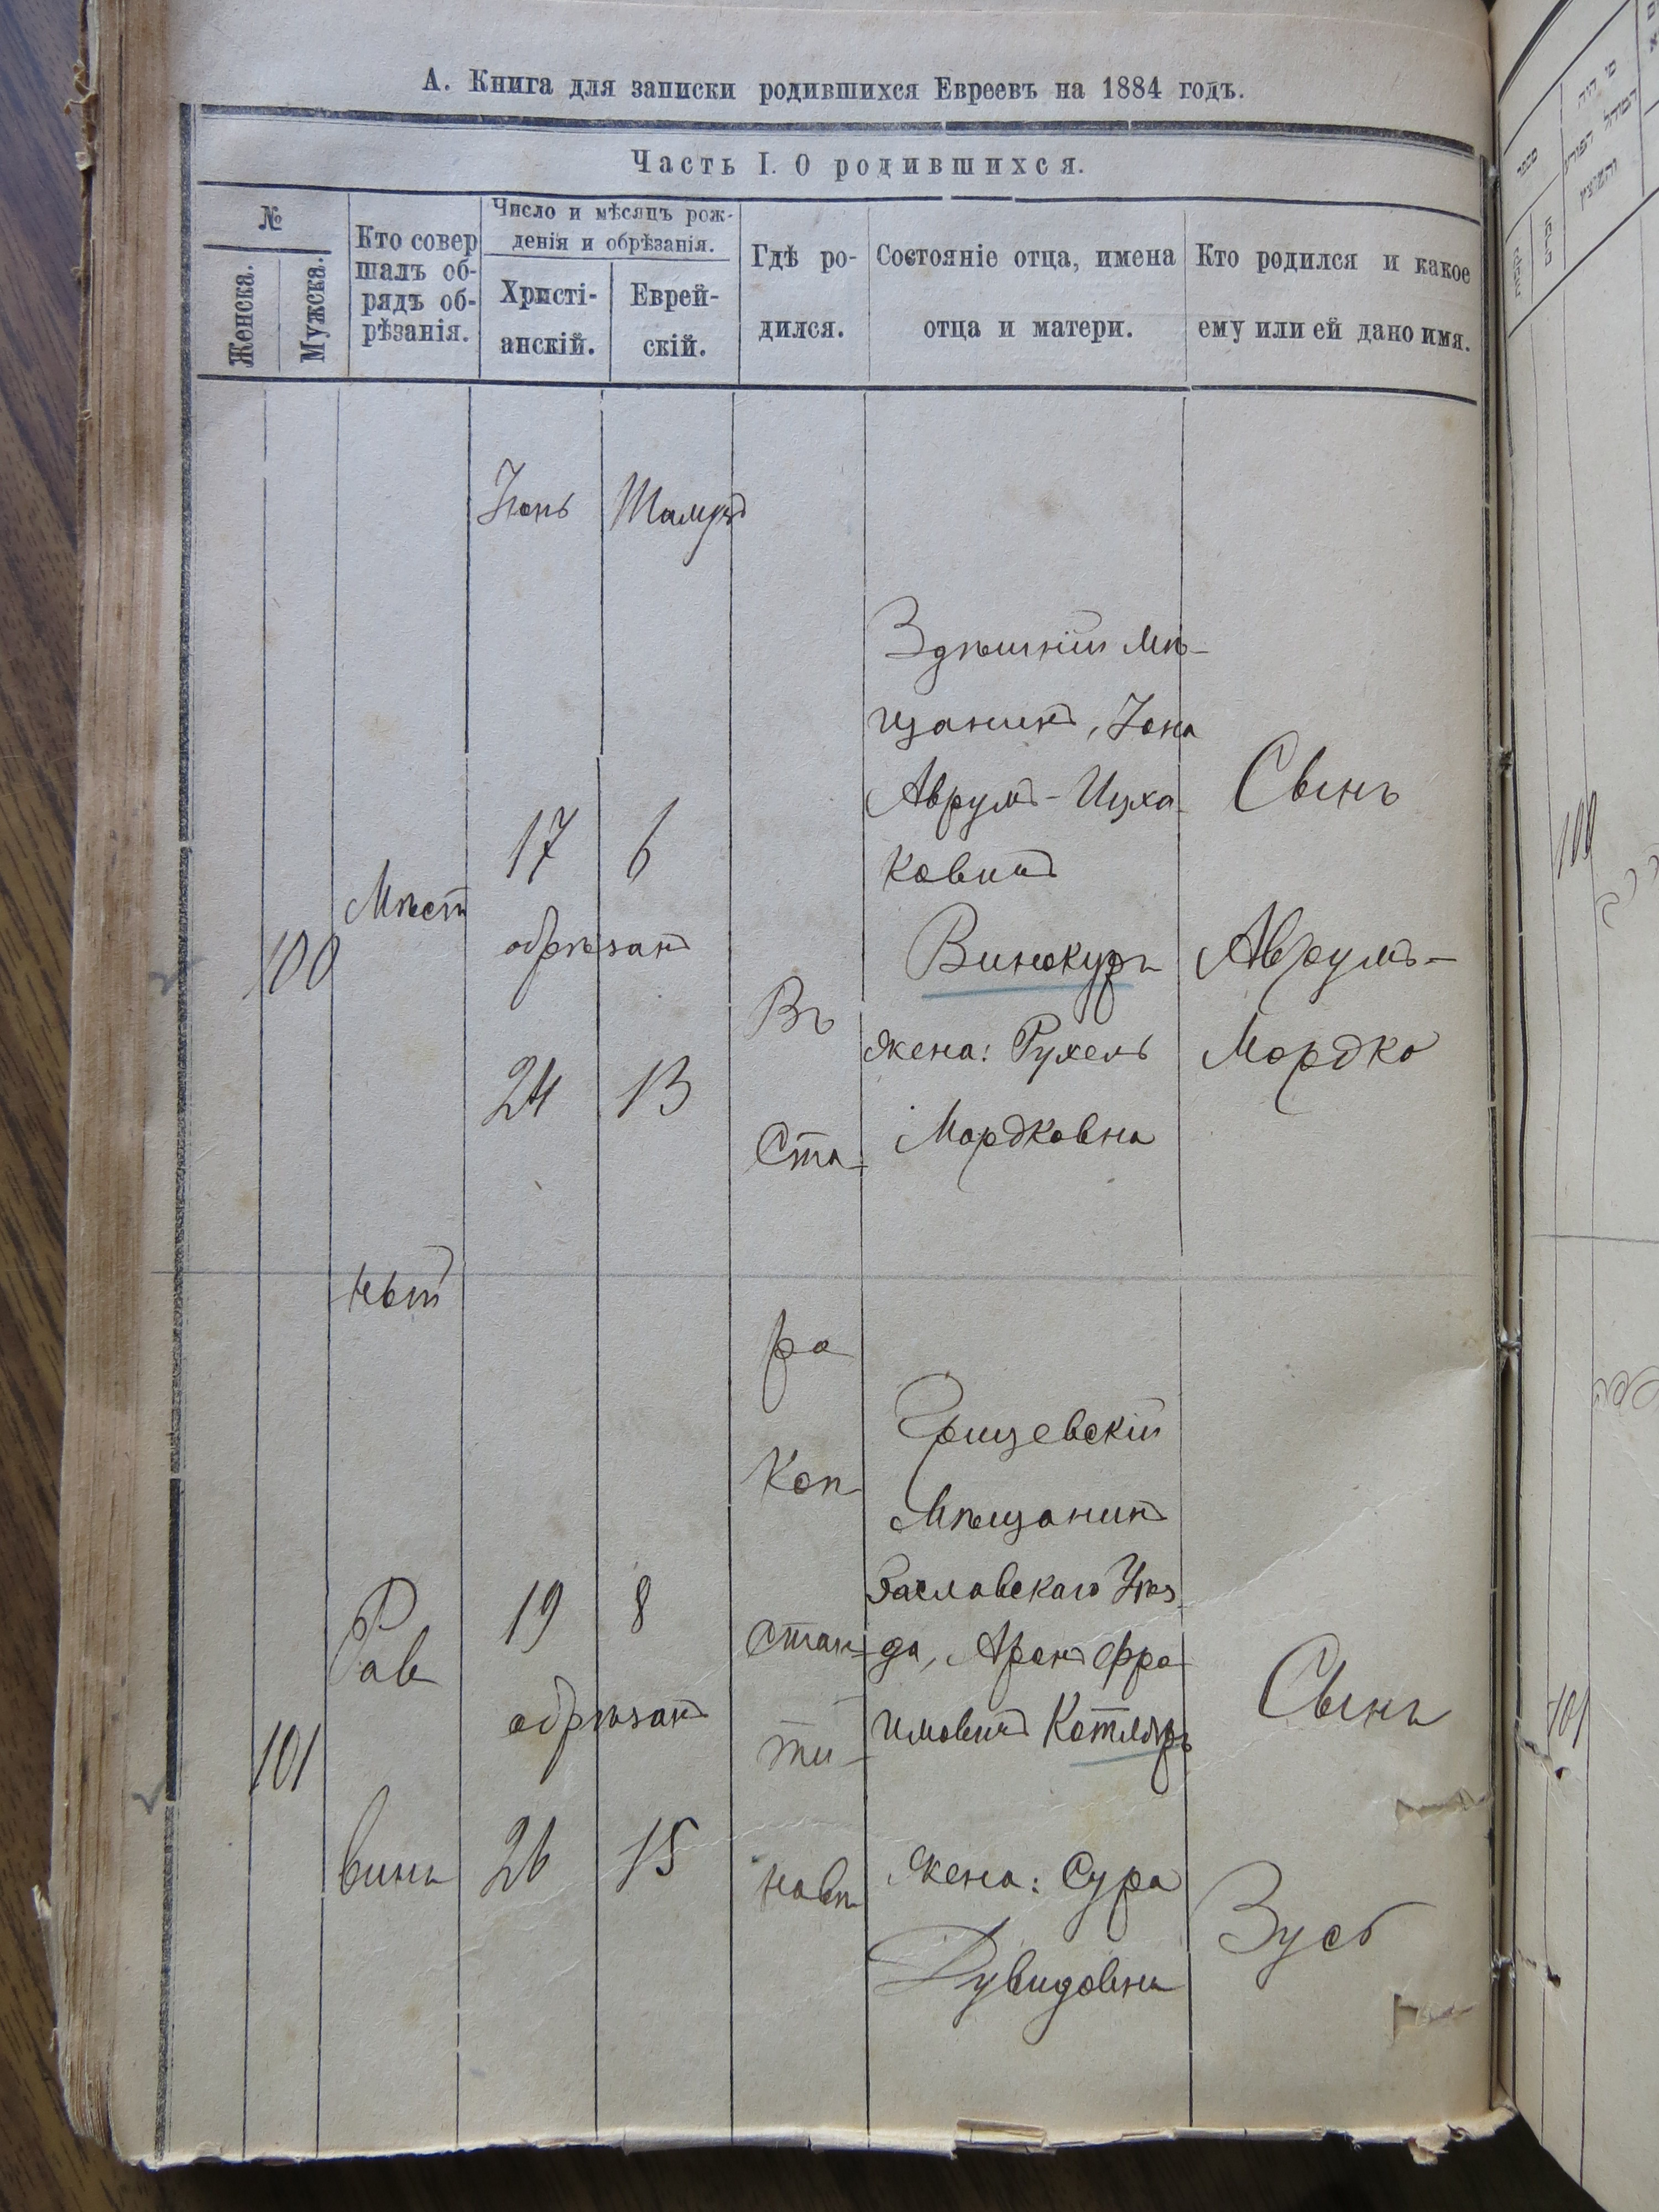 А. Книга для записки родившихся Евреевъ на 1884 годъ.
Часть I. О родившихся.
№
Женска.
Мужска.
Кто совер
шалъ об-
рядъ об-
рѣзанія.
Число и мѣсяцъ рож-
денія и обрѣзанія.
Христі-
анскій.
Еврей-
скій.
Гдѣ ро-
дился.
Состояніе отца, имена
отца и матери.
Кто родился и какое
ему или ей дано имя.
Іюнь
Тамузъ
100
Мѣст
ный
17
6
обрѣзанъ
24
13
Въ
Ста-
ра
Кон
стан-
ти-
новѣ
Здѣшній мѣ-
щанинъ, Іона
Аврумъ-Ицха
ковичъ
Винокуръ
жена: Рухель
Мордковна
Сынъ
Аврумъ-
Мордко
101
Рав
винъ
19
8
обрѣзанъ
26
15
Грицевскій
мѣщанинъ
Заславскаго Уѣз
да, Аронъ Фро
имовичъ Котляръ
жена: Сура
Дувидовна
Сынъ
Зусь
100
101